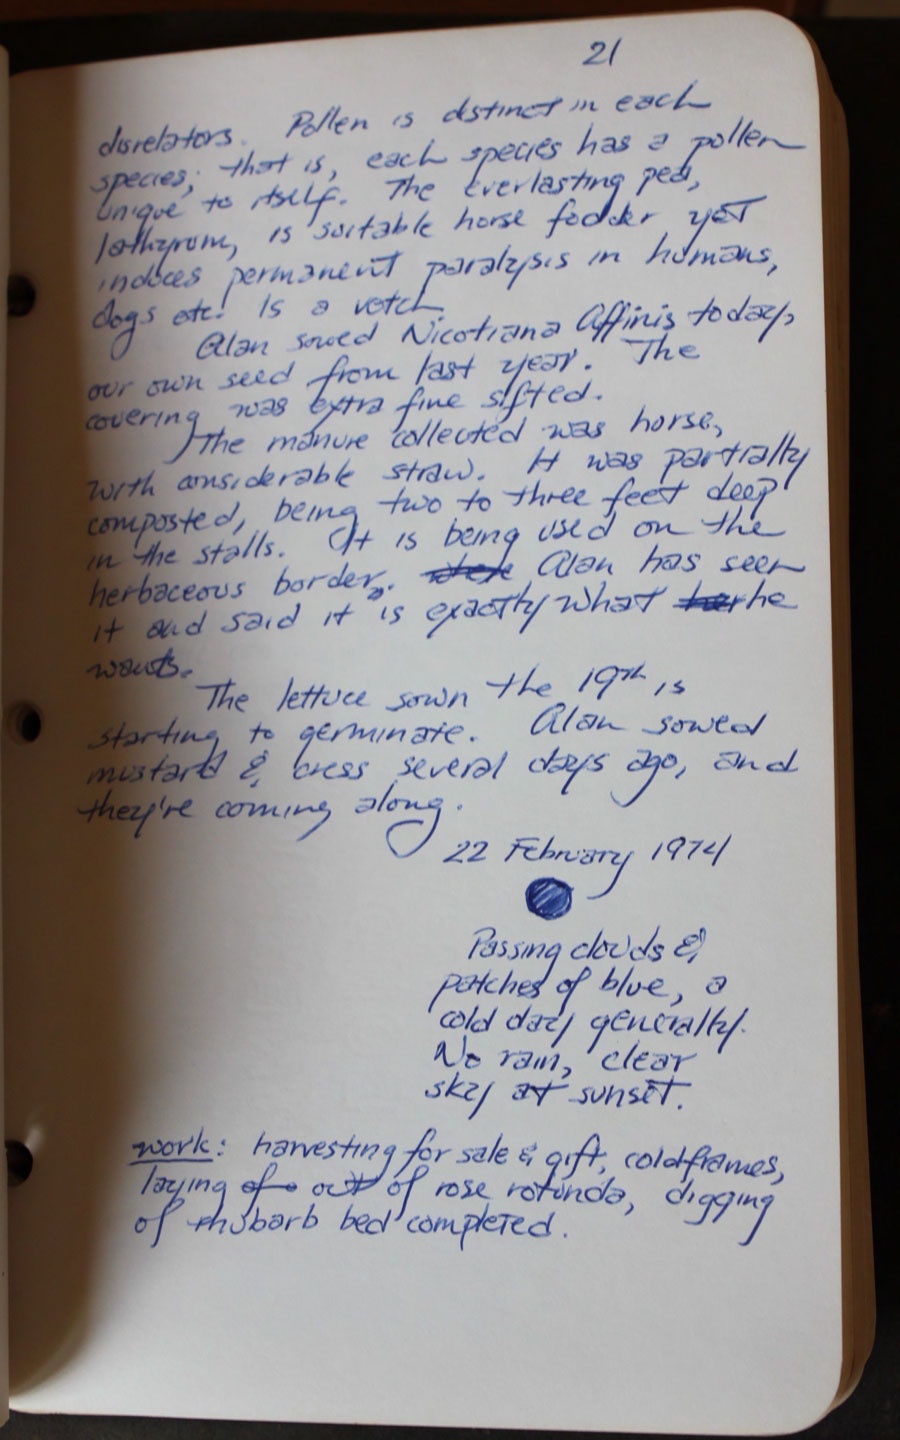 21
disrelators. Pollen is distinct in each
species; that is, each species has a pollen
unique to itself. The everlasting pea,
lathyrum, is suitable horse fodder yet
induces permanent paralysis in humans,
dogs etc. Is a vetch.
Alan sowed Nicotiana Affinis today,
our own seed from last year. The
covering was extra fine sifted.
The manure collected was horse,
with considerable straw. It was partially
composted, being two to three feet deep
in the stalls. It is being used on the
herbaceous border. Alan has seen
it and said it is exactly what he
wants.
The lettuce sown the 19th is
starting to germinate. Alan sowed
mustard & cress several days ago, and
they're coming along.
22 February 1974
Passing clouds &
patches of blue, a
cold day generally.
No rain, clear
sky at sunset.
work: harvesting for sale & gift, coldframes,
laying of out of rose rotunda, digging
of rhubarb bed completed.